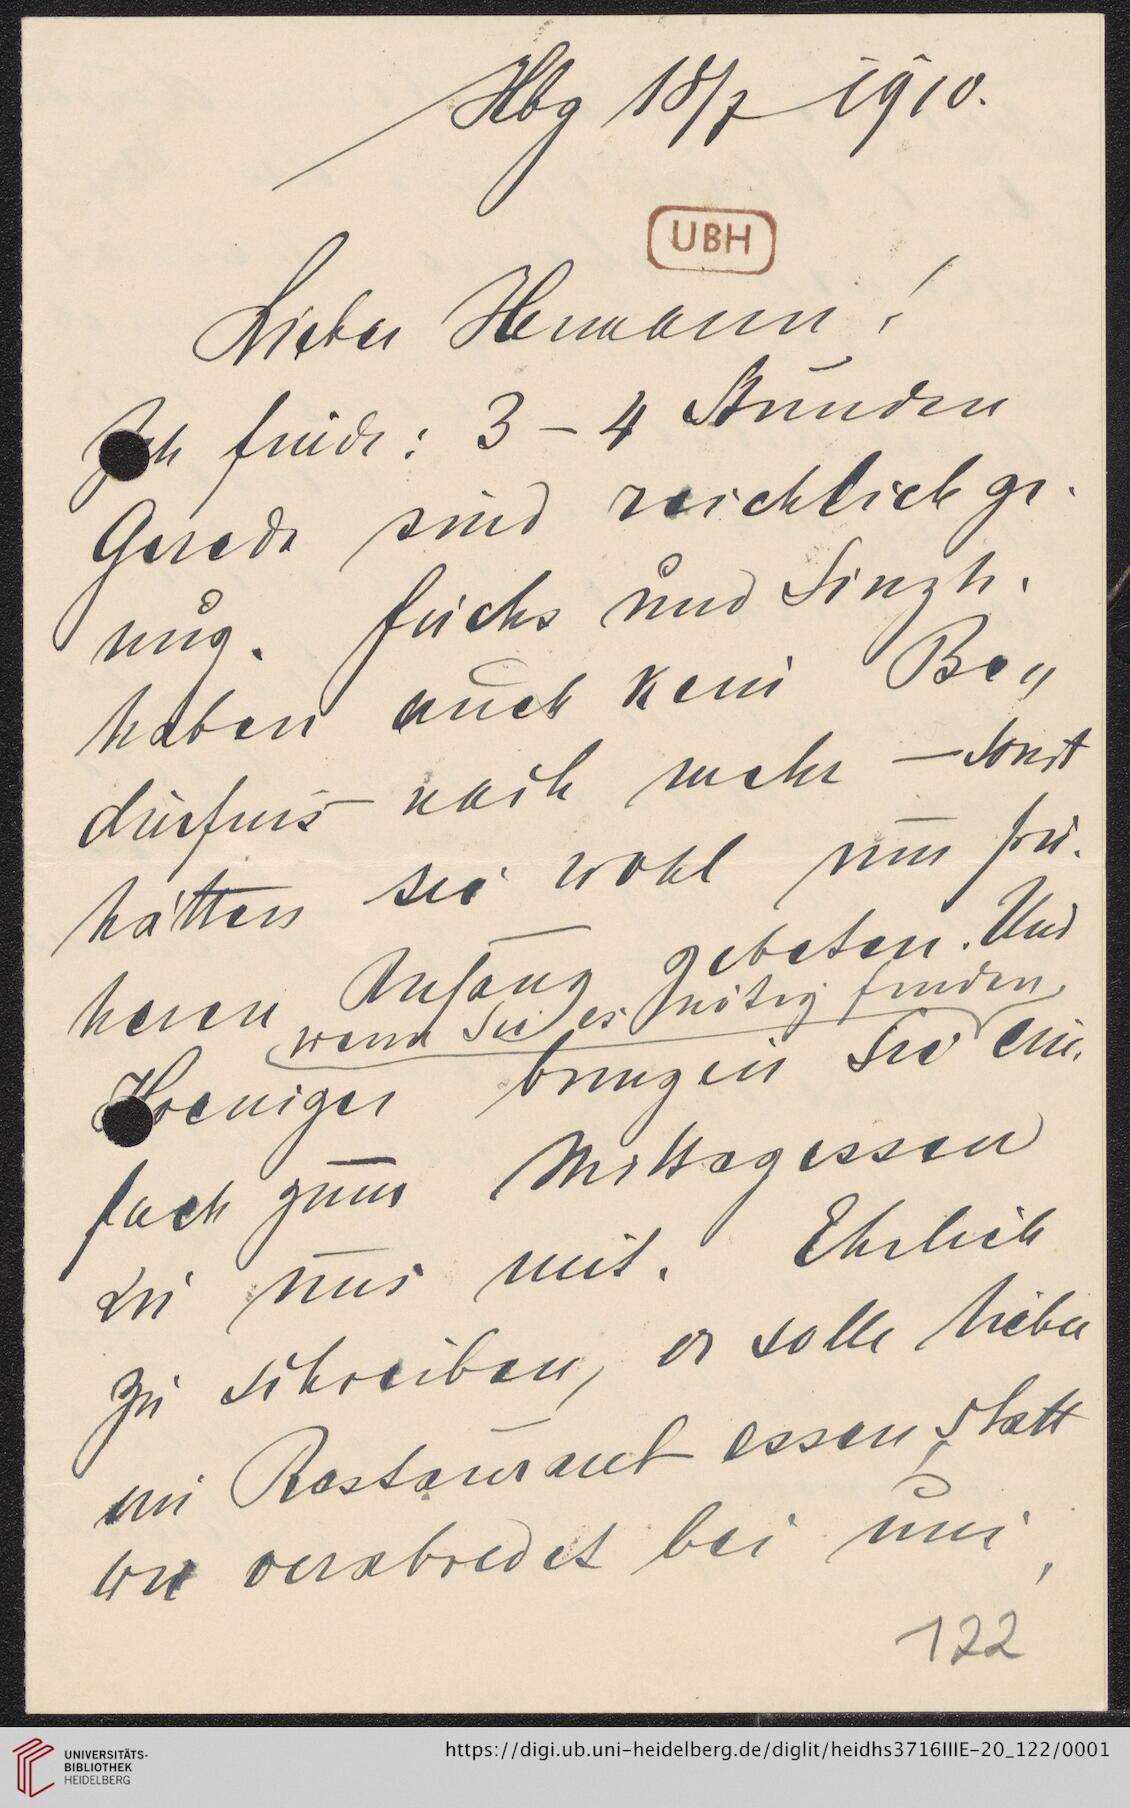 Hbg 18/7 1910.
UBH
Lieber Hermann!
Ich finde: 3 – 4 Stunden
Gerede sind reichlich ge-
nug. Fuchs und Sinzh.
haben auch kein Be„
dürfnis nach mehr – sonst
hätten sie wohl um frü-
heren Anfang gebeten. Und
wenn Sie es nötig finden,
Hoeniger bringen Sie ein-
fach zum Mittagessen
zu uns mit. Ehrlich
zu schreiben, er solle lieber
im Restaurant essen, statt
wie verabredet bei uns,
122
UNIVERSITÄTS-
BIBLIOTHEK
HEIDELBERG
https://digi.ub.uni-heidelberg.de/diglit/heidhs3716IIIE-20_122/0001